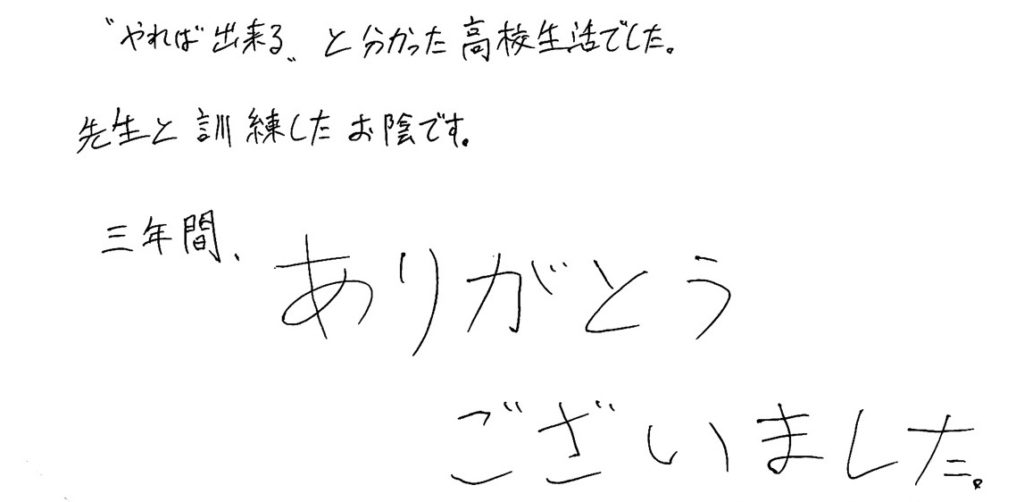 〝やれば出来る〟と分かった高校生活でした。
先生と訓練したお陰です。
三年間、ありがとう
ございました。